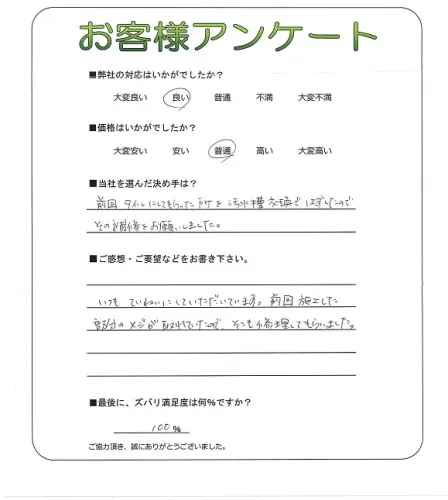 お客様アンケート
■弊社の対応はいかがでしたか？
大変良い 良い 普通 不満 大変不満
■価格はいかがでしたか？
大変安い 安い 普通 高い 大変高い
■当社を選んだ決め手は？
前回 タイルにしてもらった を 汚水槽 交換で はずしたので
その補修をお願いしました。
■ご感想・ご要望などをお書き下さい。
いつも ていねいにしていただいています。前回 施工した
部分の メジが取れていたので、そこも修理してもらいました。
■最後に、ズバリ満足度は何%ですか？
100%
ご協力頂き、誠にありがとうございました。